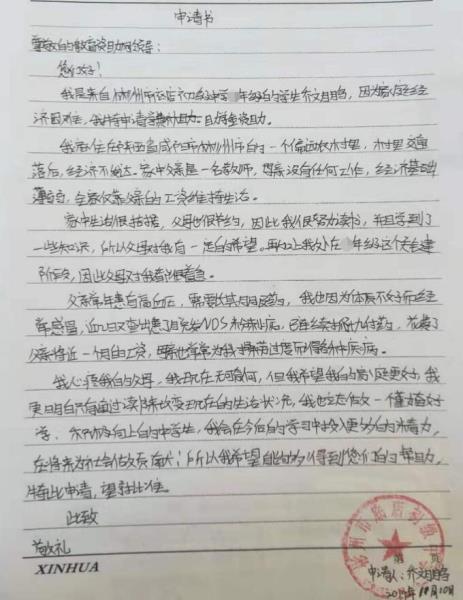 申请书
尊敬的教育资助领导：
您好！
我是来自林州市临淇初级中学 年级的学生乔文月皓，因为家庭经
济困难，我特申请学费补助。
我家住在河南省 林州市的一个偏远农村里，村里交通
落后，经济不发达。家中父亲是一名教师，母亲没有任何工作，经济基础
薄弱，全家仅靠父亲的工资维持生活。
家中生活很拮据，父母也很节约，因此我很努力读书，并且学到了
一些知识，所以父母对我有一定的希望。再加上我处在 年级这个关键
阶段，因此父母对我 很着急。
父亲常年患有高血压，需要长期服药，我也因为体质不好而经
常感冒，近几日又查出患了 病，已连续 九付药，花费了
父亲将近一个月的工资，母亲也常常为我 过度而得各种疾病。
我心疼我的父母，我现在无可奈何，但我希望我的家庭更好，我
更明白只有通过读书来改变现在的生活状况，我也立志做一懂事好
学、积极向上的中学生，我会在今后的学习中投入更多的努力，
在将来为社会做贡献；所以我希望自此可以得到您们的帮助，
特此申请，望 批准。
此致
敬礼
XINHUA
申请人：乔文月皓
10月10日